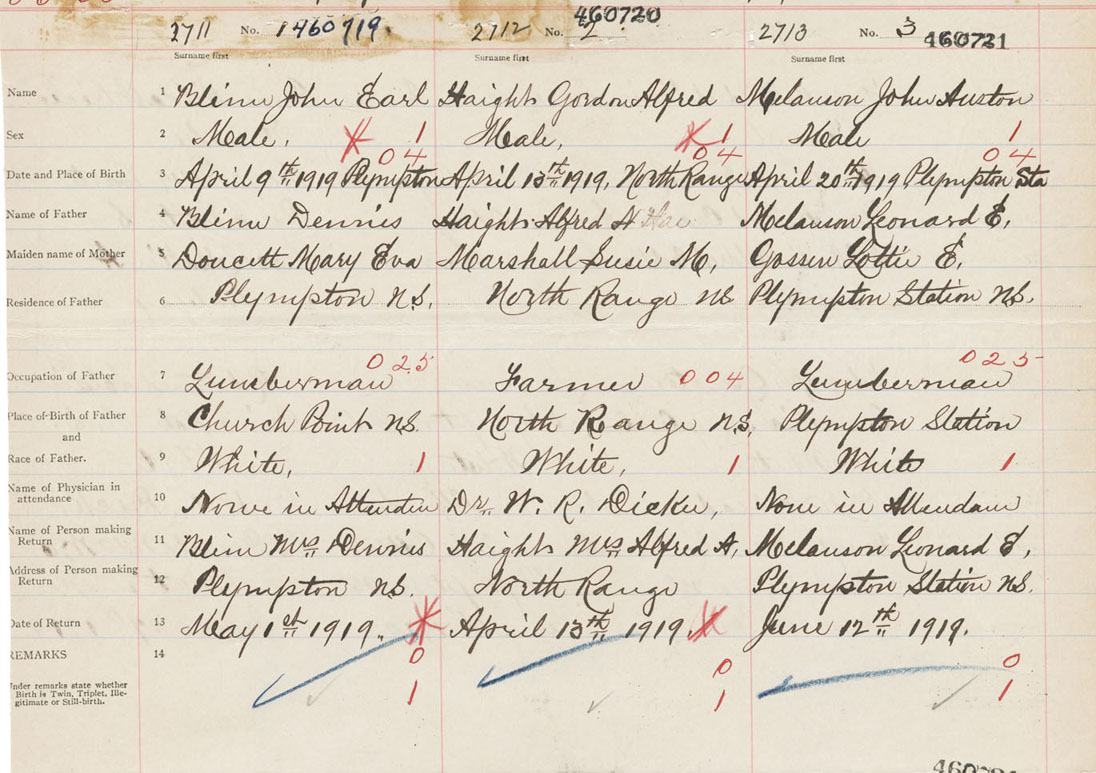 460720
2711 No. 1 460719. 2712 No. 2 2713 No. 3 460721
Surname first Surname first Surname first
Name 1 Blinn John Earl Haight Gordon Alfred Melanson John Auston
Sex 2 Male, 1 Male, 1 Male 1
04 04 04
Date and Place of Birth 3 April 9th 1919 Plympton April 13th 1919, North Range April 20th 1919 Plympton Sta
Name of Father 4 Blinn Dennis Haight Alfred A Melanson Leonard E,
Maiden name of Mother 5 Doucett Mary Eva Marshall Susie M, Gossen Lottie E,
Residence of Father 6 Plympton N.S. North Range NS Plympton Station N.S.
025 025
Occupation of Father 7 Lumberman Farmer 004 Lumberman
Place of Birth of Father 8 Church Point N.S. North Range N.S, Plympton Station
and
Race of Father. 9 White, 1 White, 1 White 1
Name of Physician in
attendance 10 None in Attenden Dr. W. R. Dickie, None in Attendam
Name of Person making
Return 11 Blinn Mrs Dennis Haight Mrs Alfred A, Melanson Leonard E,
Address of Person making
Return 12 Plympton N.S. North Range Plympton Station N.S.
Date of Return 13 May 1st 1919. April 13th 1919. June 12th 1919.
REMARKS 14 0 0 0
Under remarks state whether
Birth is Twin, Triplet, Ille-
gitimate or Still-birth. 1 1 1